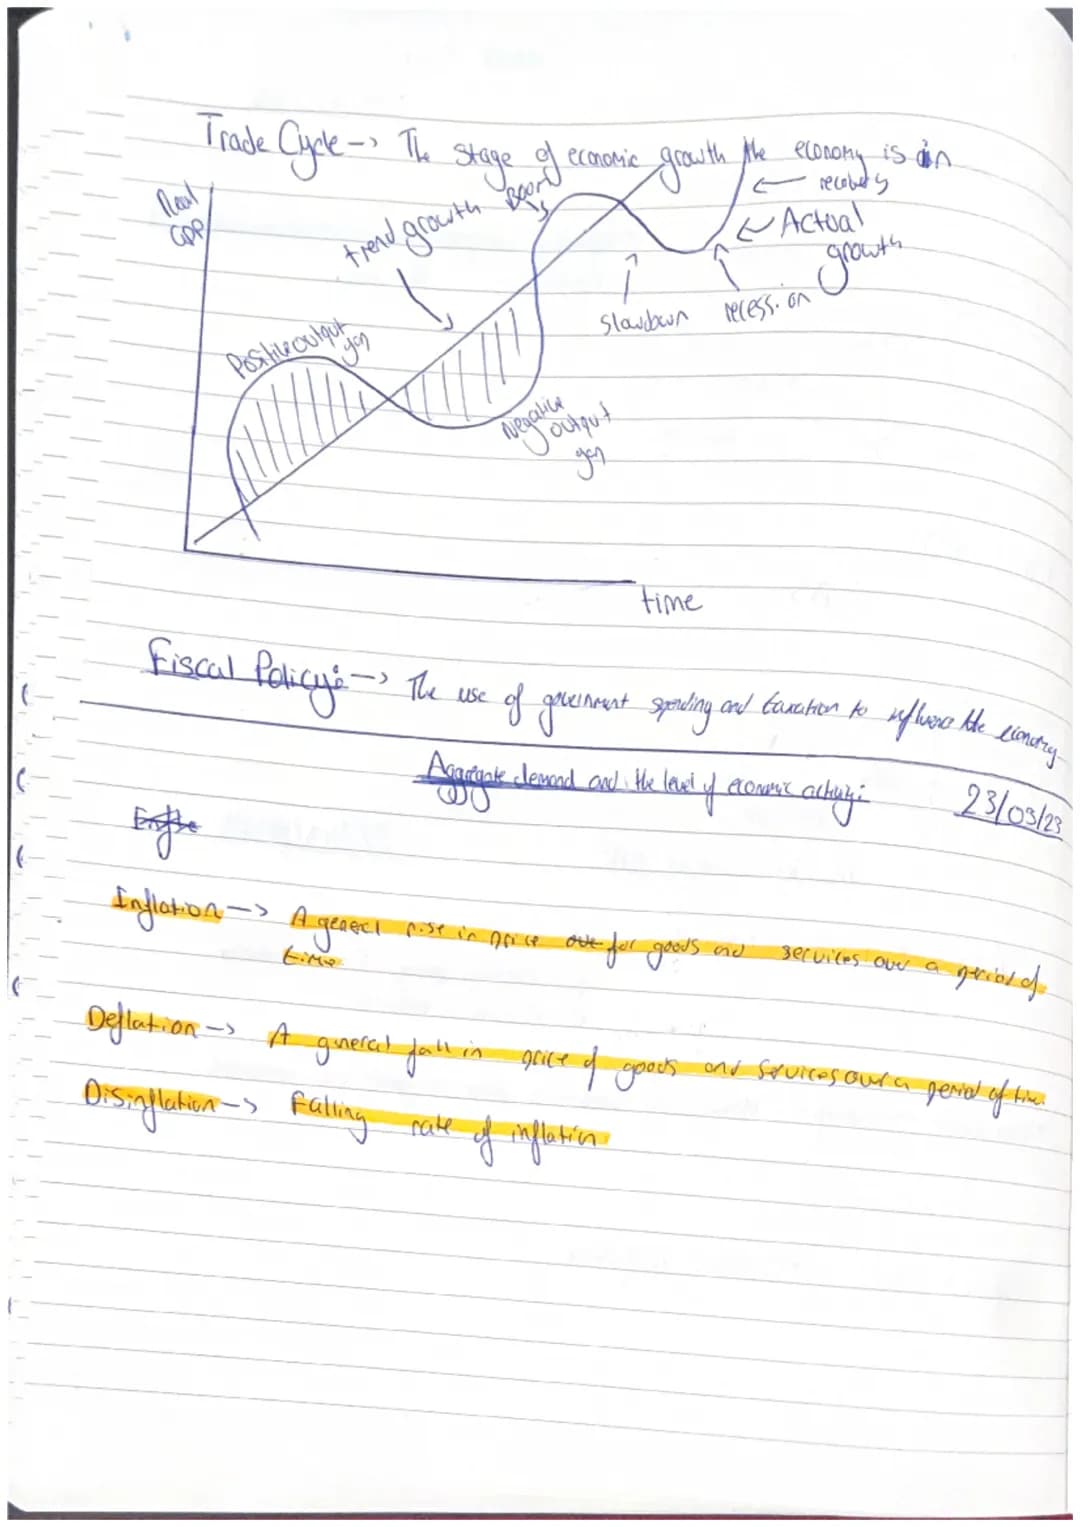 Trade Cycle --> The stage of economic growth the economy is in
Real
GDP
trend growth
Boom
recovery
Actual
growth
Slowdown
recession
Positive output
gap
Negative
output
gap
time
Fiscal Policy: --> The use of government spending and taxation to influence the economy
Aggregate demand and the level of economic activity:
23/03/23
Inflation --> A general rise in price for goods and services over a period of
time
Deflation --> A general fall in price of goods and services over a period of time
Disinflation --> Falling rate of inflation